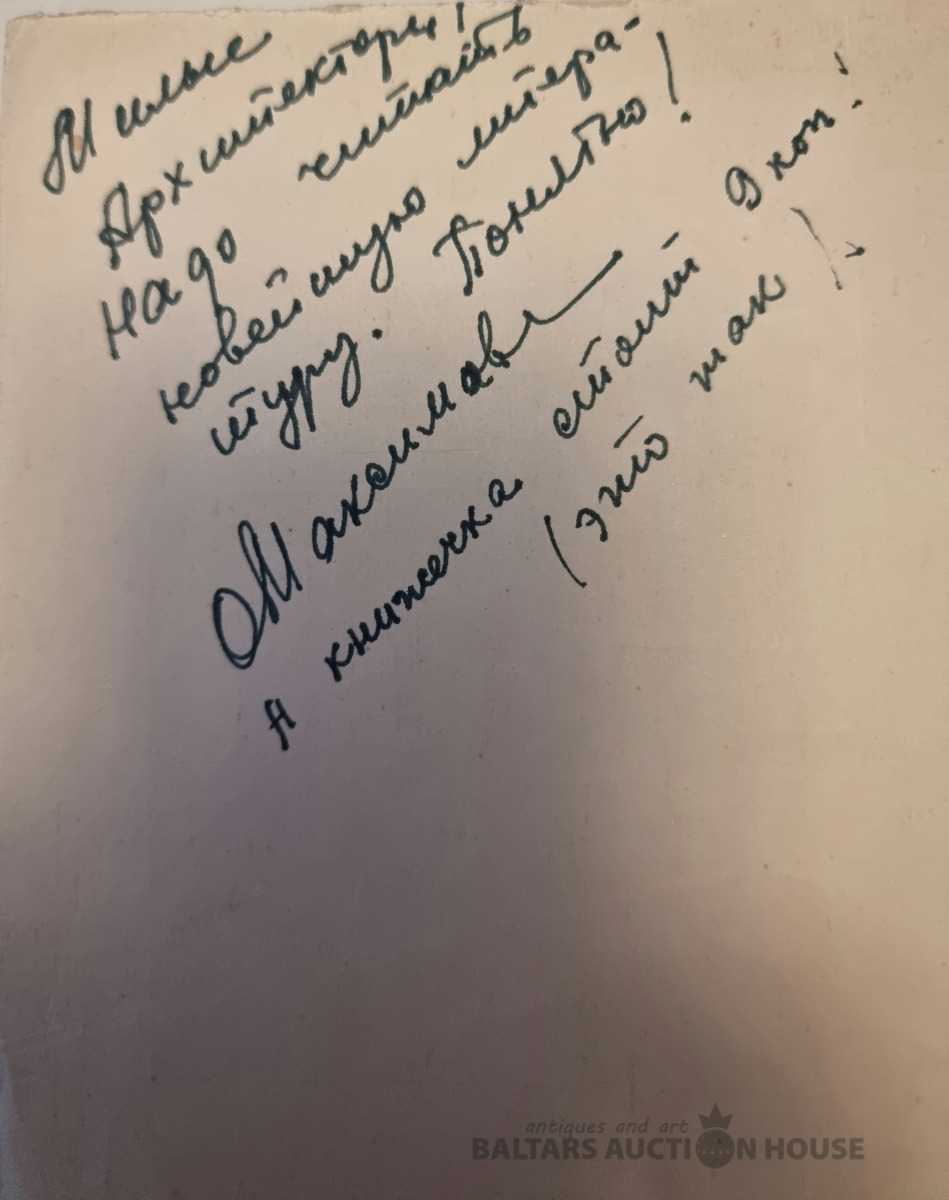 Милые
Архитекторы!
Надо читать
новейшую литера-
туру. Понятно!
Максимов
А книжечка стоит 9 коп!
(это так)
antiques and art
BALTARS AUCTION HOUSE